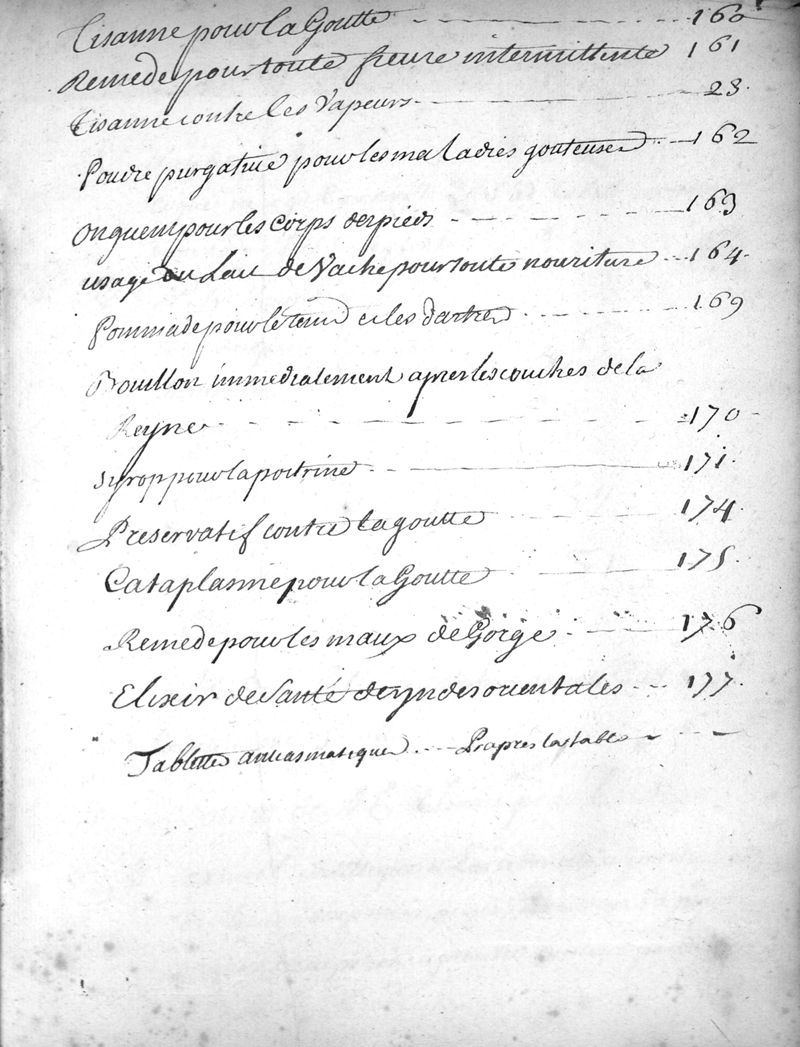 Tisanne pour la Goutte - - - - - 160
Remede pour toute fievre intermittente 161
Tisanne contre les Vapeurs - - - - 23.
Poudre purgative pour les maladies gouteuses - 162
Onguent pour les Corps des pieds - - - - - 163
usage du Lait de Vache pour toute nouriture - - 164.
Pommade pour le teint et les dartres - - - - 169
Bouillon immediatement apres les couches de la
Reyne - - - - - - - - 170
Syrop pour la poitrine - - - - 171.
Preservatif contre la goutte - - - - 174
Cataplasme pour la Goutte - - - 175.
Remede pour les maux de Gorge - - - 176
Elixir de Santé des yndes orientales - - - 177.
Tablettes antiasmatiques - - - - apres la table - - -